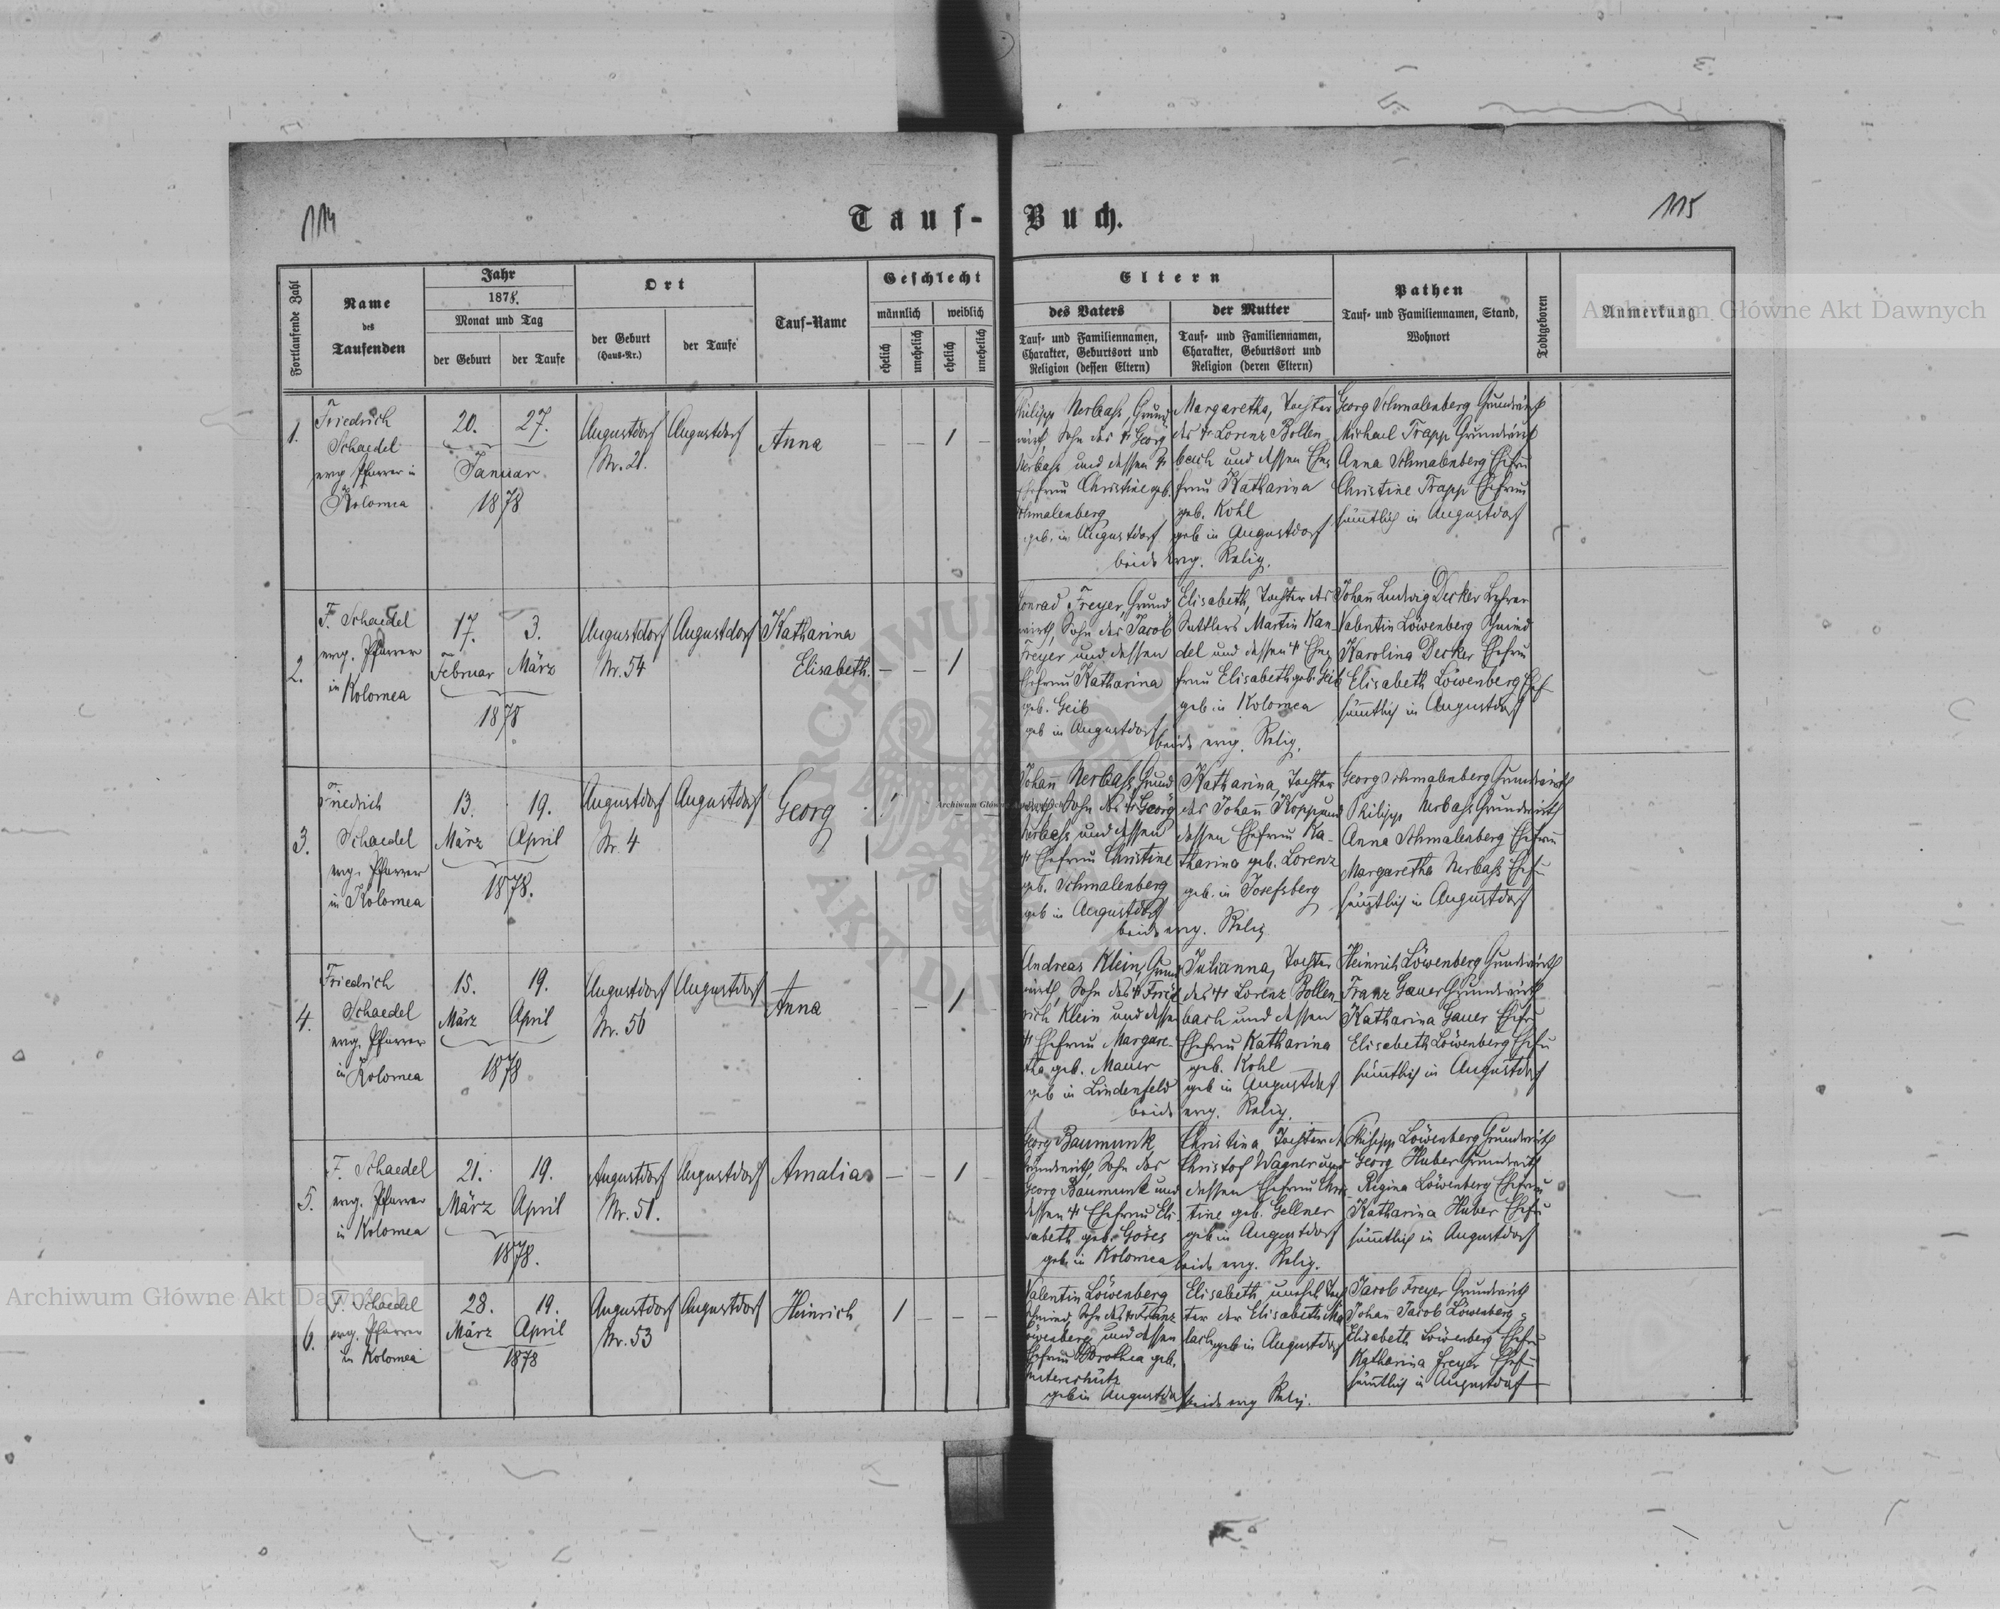 114
115
Tauf-Buch.
Fortlaufende Zahl
Name
des
Taufenden
Jahr
1878.
Monat und Tag
der Geburt
der Taufe
Ort
der Geburt
(Haus-Nr.)
der Taufe
Tauf-Name
Geschlecht
männlich
weiblich
ehelich
unehelich
ehelich
unehelich
Eltern
des Vaters
Tauf- und Familiennamen,
Charakter, Geburtsort und
Religion (dessen Eltern)
der Mutter
Tauf- und Familiennamen,
Charakter, Geburtsort und
Religion (deren Eltern)
Pathen
Tauf- und Familiennamen, Stand,
Wohnort
Todtgeboren
Anmerkung
1.
Friedrich
Schaedel
evng. Pfarrer in
Kolomea
20.
27.
Januar
1878
Augustdorf
Nr. 21.
Augustdorf
Anna
— — 1 —
Philipp Nerbaß, Grund
wirth, Sohn des † Georg
Nerbaß und dessen †
Ehefrau Christine geb.
Schmalenberg
geb. in Augustdorf
Margaretha, Tochter
des † Lorenz Bollen
bach und dessen Ehe
frau Katharina
geb. Kohl
geb in Augustdorf
beide evg. Relig.
Georg Schmalenberg Grundwirth
Michael Trapp Grundwirth
Anna Schmalenberg Ehefru
Christine Trapp Ehefrau
sämtlich in Augustdorf
2.
F. Schaedel
evng. Pfarrer
in Kolomea
17.
Februar
3.
März
1878
Augustdorf
Nr. 54
Augustdorf
Katharina
Elisabeth.
— — 1
Konrad Freyer, Grund
wirth, Sohn des Jacob
Freyer und dessen
Ehefrau Katharina
geb. Geib
geb in Augustdorf
Elisabeth, Tochter des
Sattlers Martin Kan
del und dessen † Ehe
frau Elisabeth geb. Geib
geb in Kolomea
beide evng. Relig.
Johann Ludwig Decker Lehrer
Valentin Löwenberg Schmied
Karolina Decker Ehefru
Elisabeth Löwenberg Ehef
sämtlich in Augustdorf
3.
Friedrich
Schaedel
evng. Pfarrer
in Kolomea
13.
März
19.
April
1878.
Augustdorf
Nr. 4
Augustdorf
Georg
1
Johann Nerbaß, Grund
wirth, Sohn des † Georg
Nerbaß und dessen
† Ehefrau Christine
geb. Schmalenberg
geb in Augustdorf
Katharina, Tochter
des Johann Kopp und
dessen Ehefrau Ka-
tharina geb. Lorenz
geb. in Josefsberg
beide evng. Relig
Georg Schmalenberg Grundwirth
Philipp Nerbaß Grundwirth
Anna Schmalenberg Ehefru
Margaretha Nerbaß Ehef
sämtlich in Augustdorf
4.
Friedrich
Schaedel
evng. Pfarrer
in Kolomea
15.
März
19.
April
1878
Augustdorf
Nr. 56
Augustdorf
Anna
— 1
Andreas Klein, Grund
wirth, Sohn des † Fried
rich Klein und dessen
† Ehefrau Margare-
tha geb. Mauer
geb in Lindenfeld
Julianna, Tochter
des † Lorenz Bollen
bach und dessen
Ehefrau Katharina
geb. Kohl
geb in Augustdorf
beide evng. Relig.
Heinrich Löwenberg Grundwirth
Franz Gauer Grundwirth
Katharina Gauer Ehefr
Elisabeth Löwenberg Ehefu
sämtlich in Augustdorf
5.
F. Schaedel
evng. Pfarrer
in Kolomea
21.
März
19.
April
1878.
Augustdorf
Nr. 51.
Augustdorf
Amalia
— — 1 —
Georg Baumunk
Grundwirth, Sohn des
Georg Baumunk und
dessen † Ehefrau Eli-
sabeth geb. Göres
geb in Kolomea
Christina, Tochter d
Christof Wagner und
dessen Ehefrau Chri-
stine geb. Gellner
geb in Augustdorf
beide evng. Relig.
Philipp Löwenberg Grundwirth
Georg Huber Grundwirth
Regina Löwenberg Ehefru
Katharina Huber Ehefu
sämtlich in Augustdorf
6.
F. Schaedel
evng. Pfarrer
in Kolomea
28.
März
19.
April
1878
Augustdorf
Nr. 53
Augustdorf
Heinrich
1 — — —
Valentin Löwenberg
Schmied, Sohn des † Franz
Löwenberg und dessen
Ehefrau Dorothea geb.
Unterschütz
geb in Augustdorf
Elisabeth unehel Toch
ter der Elisabeth Ma
lach geb in Augustdorf
beide evng Relig.
Jacob Freyer Grundwirth
Johann Jacob Löwenberg
Elisabeth Löwenberg Ehefru
Katharina Freyer Ehef
sämtlich in Augustdorf
Archiwum Główne Akt Dawnych
Archiwum Główne Akt Dawnych
ARCHIWUM
AKT DAWNYCH